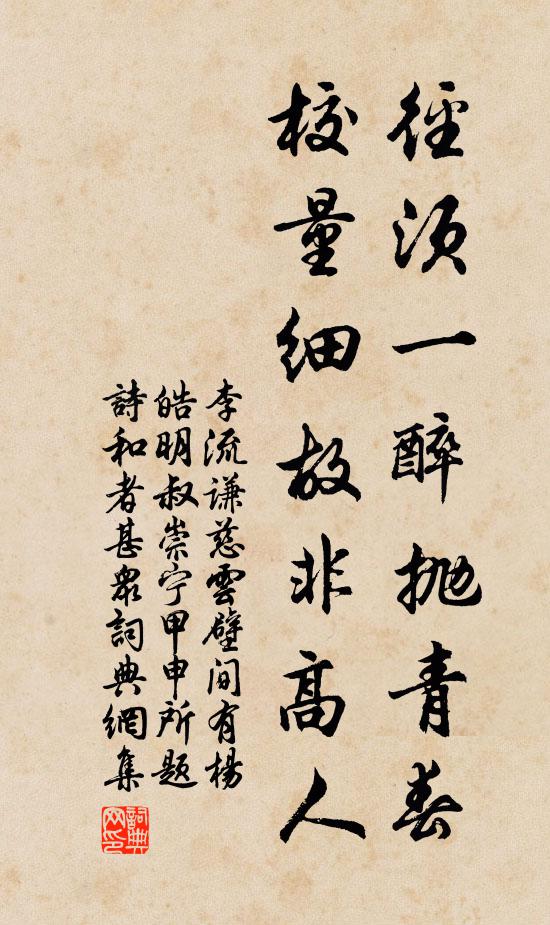 徑須一醉拋青春
校量細故非高人
李流謙慈雲壁间有楊
皓明叔崇宁甲申所題
詩和者甚眾詞典網集
詞典网印